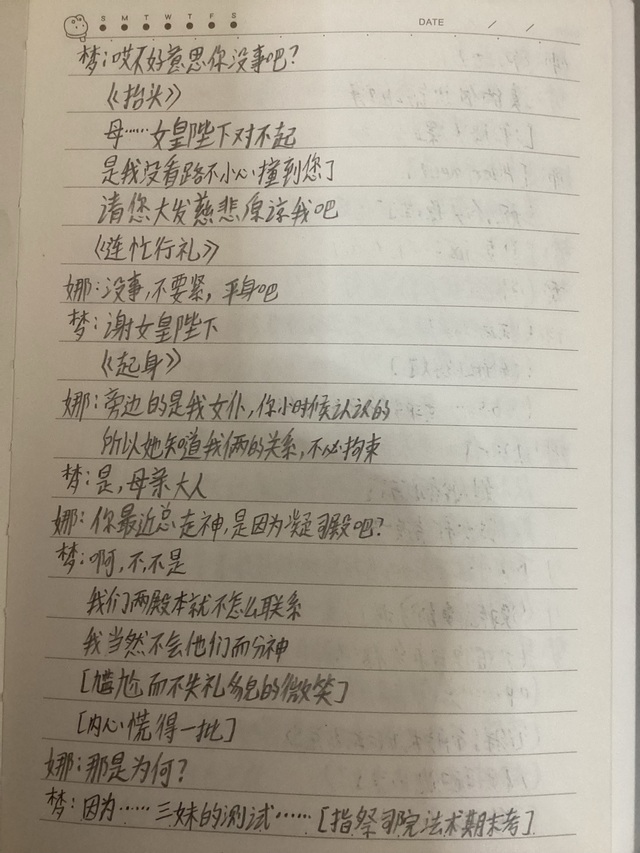 S M T W T F S
DATE / /
梦:哎不好意思你没事吧?
《抬头》
母……女皇陛下对不起
是我没看路不小心撞到您了
请您大发慈悲原谅我吧
《连忙行礼》
娜:没事,不要紧,平身吧
梦:谢女皇陛下
《起身》
娜:旁边的是我女仆,你小时候认识的
所以她知道我俩的关系,不必拘束
梦:是,母亲大人
娜:你最近总走神,是因为凝司殿吧?
梦:啊,不,不是
我们两殿本就不怎么联系
我当然不会他们而分神
[尴尬而不失礼貌的微笑]
[内心慌得一批]
娜:那是为何?
梦:因为……三妹的测试……[指祭司院法术期末考]